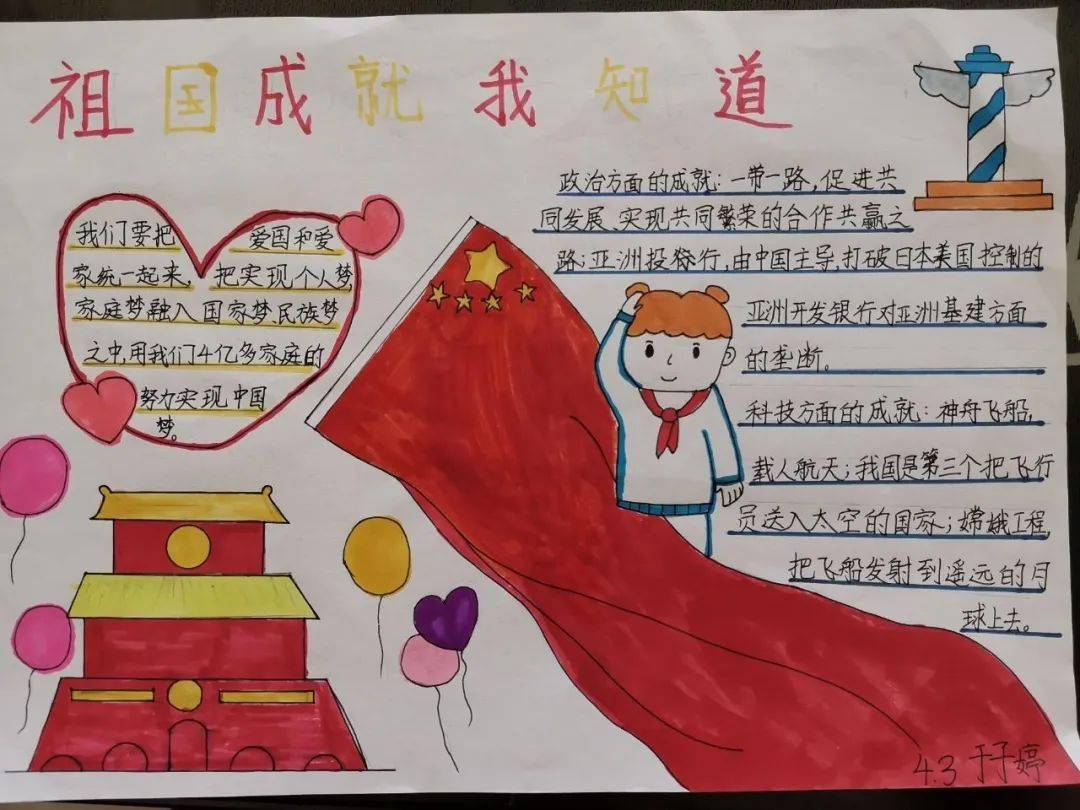 祖国成就我知道
我们要把 爱国和爱
家统一起来, 把实现个人梦
家庭梦融入国家梦、民族梦
之中,用我们4亿多家庭的
努力实现中国
梦。
政治方面的成就:一带一路,促进共
同发展、实现共同繁荣的合作共赢之
路;亚洲投行,由中国主导,打破日本美国控制的
亚洲开发银行对亚洲基建方面
的垄断。
科技方面的成就:神舟飞船,
载人航天;我国是第三个把飞行
员送入太空的国家;嫦娥工程,
把飞船发射到遥远的月
球上去。
4.3 于子婷